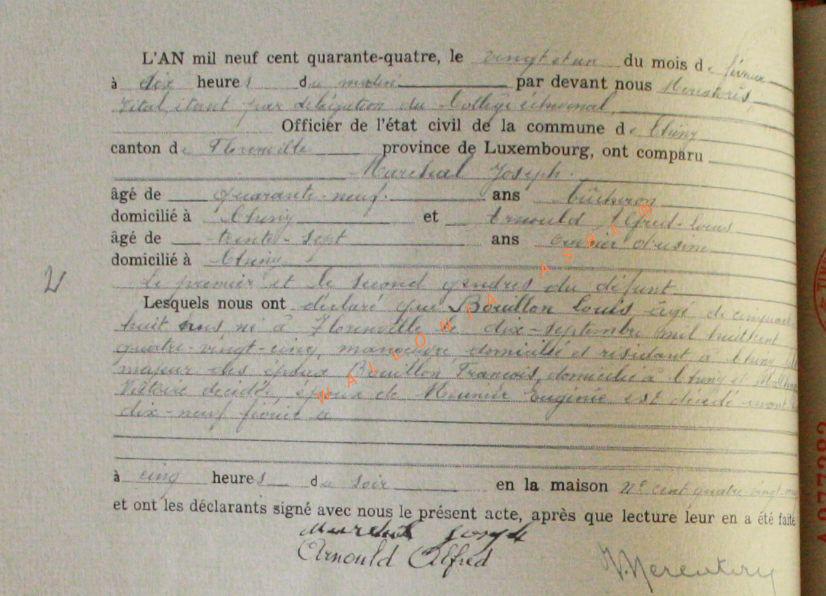 L'AN mil neuf cent quarante-quatre, le vingt et un du mois de février
à dix heures du matin par devant nous
Vital, étant par délégation du Collège échevinal,
Officier de l'état civil de la commune de Chiny
canton de Florenville province de Luxembourg, ont comparu
Maréchal Joseph.
âgé de quarante-neuf. ans bûcheron
domicilié à Chiny et Arnould Alfred-Louis
âgé de trente-sept ans ouvrier d'usine
domicilié à Chiny
Le premier et le second gendres du défunt
Lesquels nous ont déclaré que Bouillon Louis, âgé de cinquante
huit ans né à Florenville le dix-septembre mil huit cent
quatre-vingt-cinq, manoeuvre domicilié et résidant à Chiny, fils
majeur des époux Bouillon François, domicilié à Chiny et
Victoire décédée, époux de Meunier Eugénie est décédé
dix-neuf février à
à cinq heures du soir en la maison n° cent quatre-vingt
et ont les déclarants signé avec nous le présent acte, après que lecture leur en a été faite
Joseph
Arnould Alfred
WALLONIA ASBL